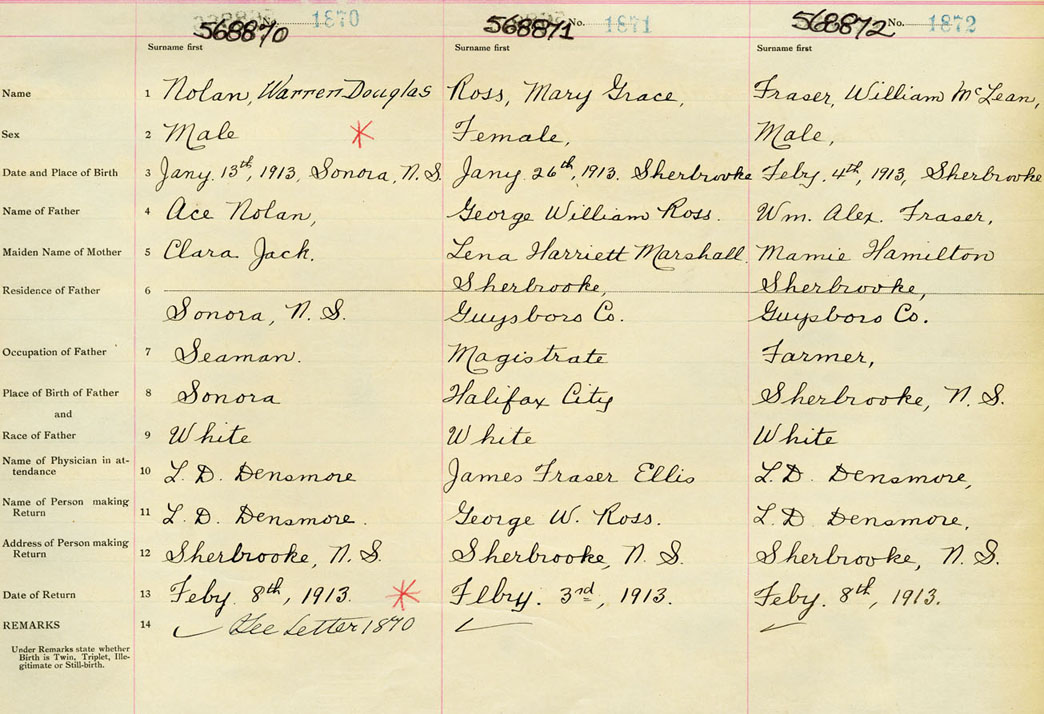 568870 No. 1870 568871 No. 1871 568872 No. 1872
Surname first Surname first Surname first
Name 1 Nolan, Warren Douglas Ross, Mary Grace, Fraser, William McLean,
Sex 2 Male * Female, Male,
Date and Place of Birth 3 Jany. 13th, 1913, Sonora, N.S. Jany. 26th, 1913. Sherbrooke Feby. 4th, 1913, Sherbrooke
Name of Father 4 Ace Nolan, George William Ross. Wm. Alex. Fraser,
Maiden Name of Mother 5 Clara Jack. Lena Harriett Marshall. Mamie Hamilton
Residence of Father 6 Sherbrooke, Sherbrooke,
Sonora, N. S. Guysboro Co. Guysboro Co.
Occupation of Father 7 Seaman. Magistrate Farmer,
Place of Birth of Father 8 Sonora Halifax City Sherbrooke, N. S.
and
Race of Father 9 White White White
Name of Physician in at-
tendance 10 L. D. Densmore James Fraser Ellis L. D. Densmore,
Name of Person making
Return 11 L. D. Densmore. George W. Ross. L. D. Densmore,
Address of Person making
Return 12 Sherbrooke, N. S. Sherbrooke, N. S. Sherbrooke, N. S.
Date of Return 13 Feby. 8th, 1913. * Febry. 3rd, 1913. Feby. 8th, 1913.
REMARKS 14 ✓ See Letter 1870 ✓ ✓
Under Remarks state whether
Birth is Twin, Triplet, Ille-
gitimate or Still-birth.